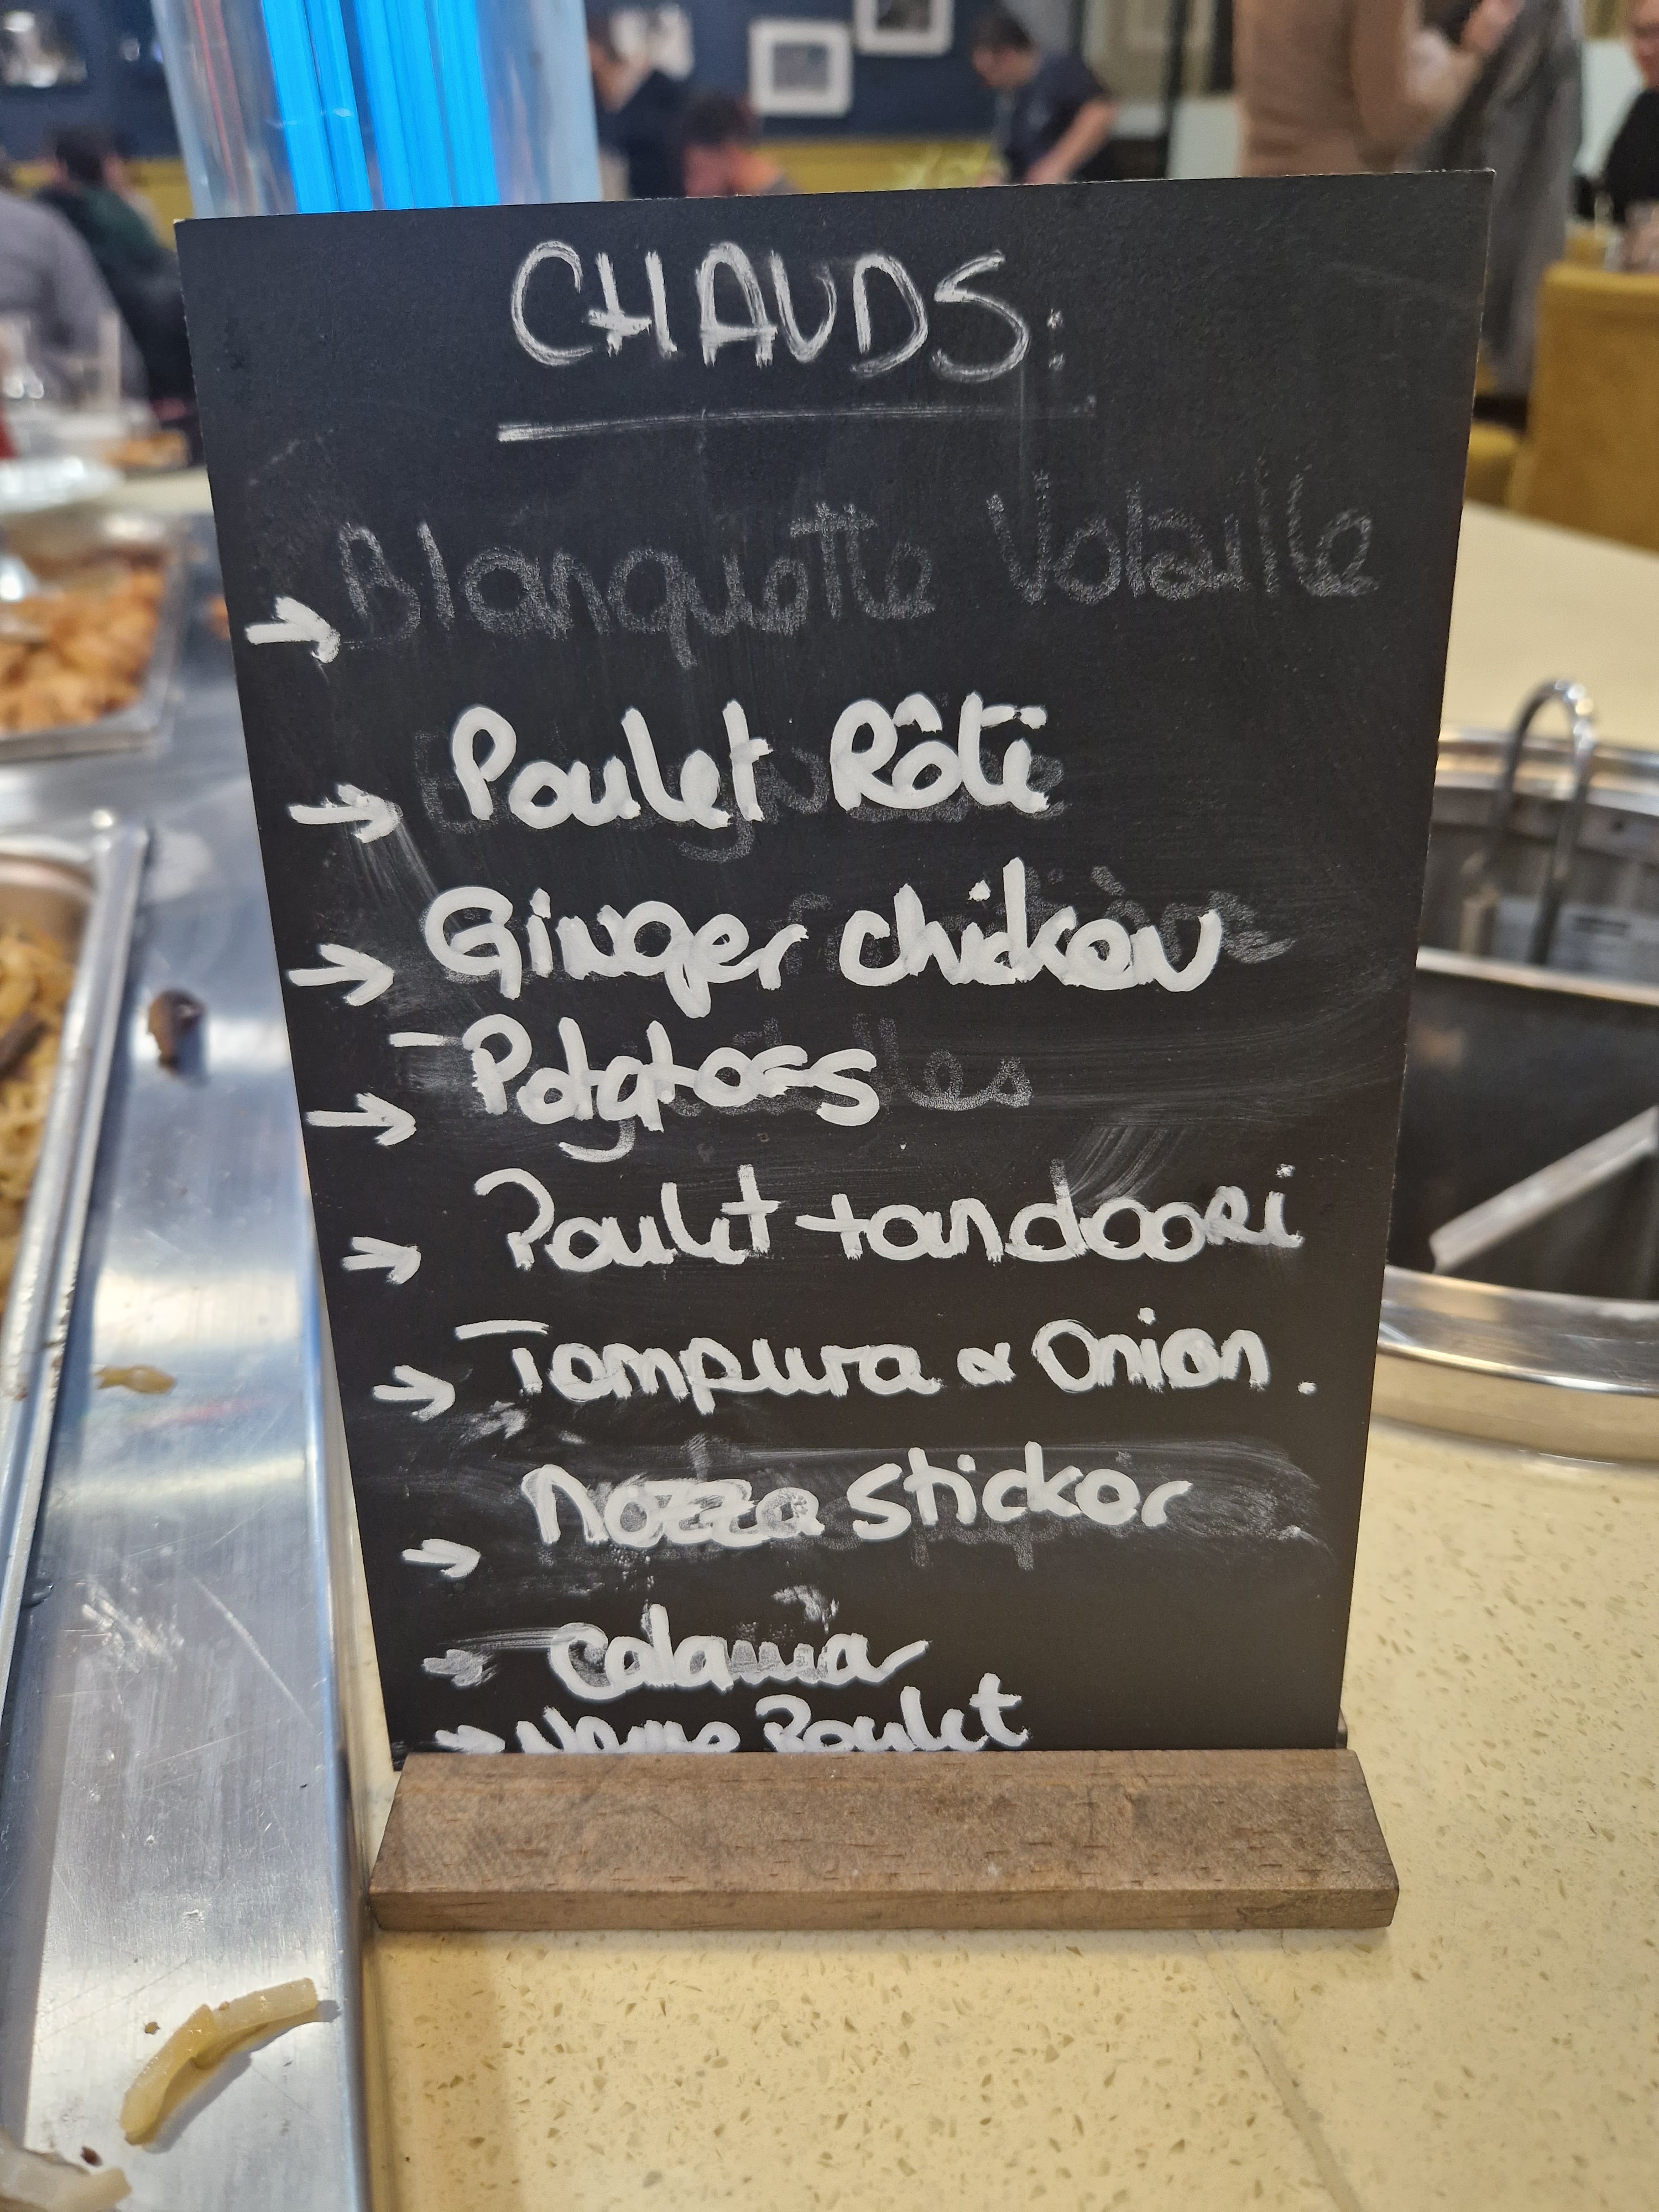 CHAUDS:
→ Blanquette Volaille
→ Poulet Rôti
→ Ginger chicken
→ Potatoes
→ Poulet tandoori
→ Tempura & Onion.
→ Mozza sticker
→ Calamar
→ Poulet